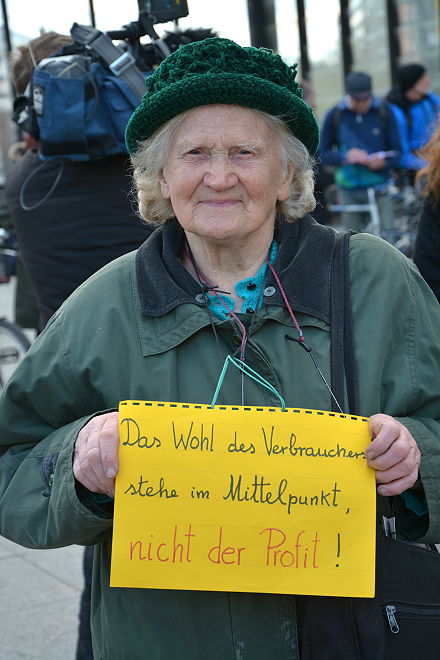 Das Wohl des Verbrauchers
stehe im Mittelpunkt,
nicht der Profit!